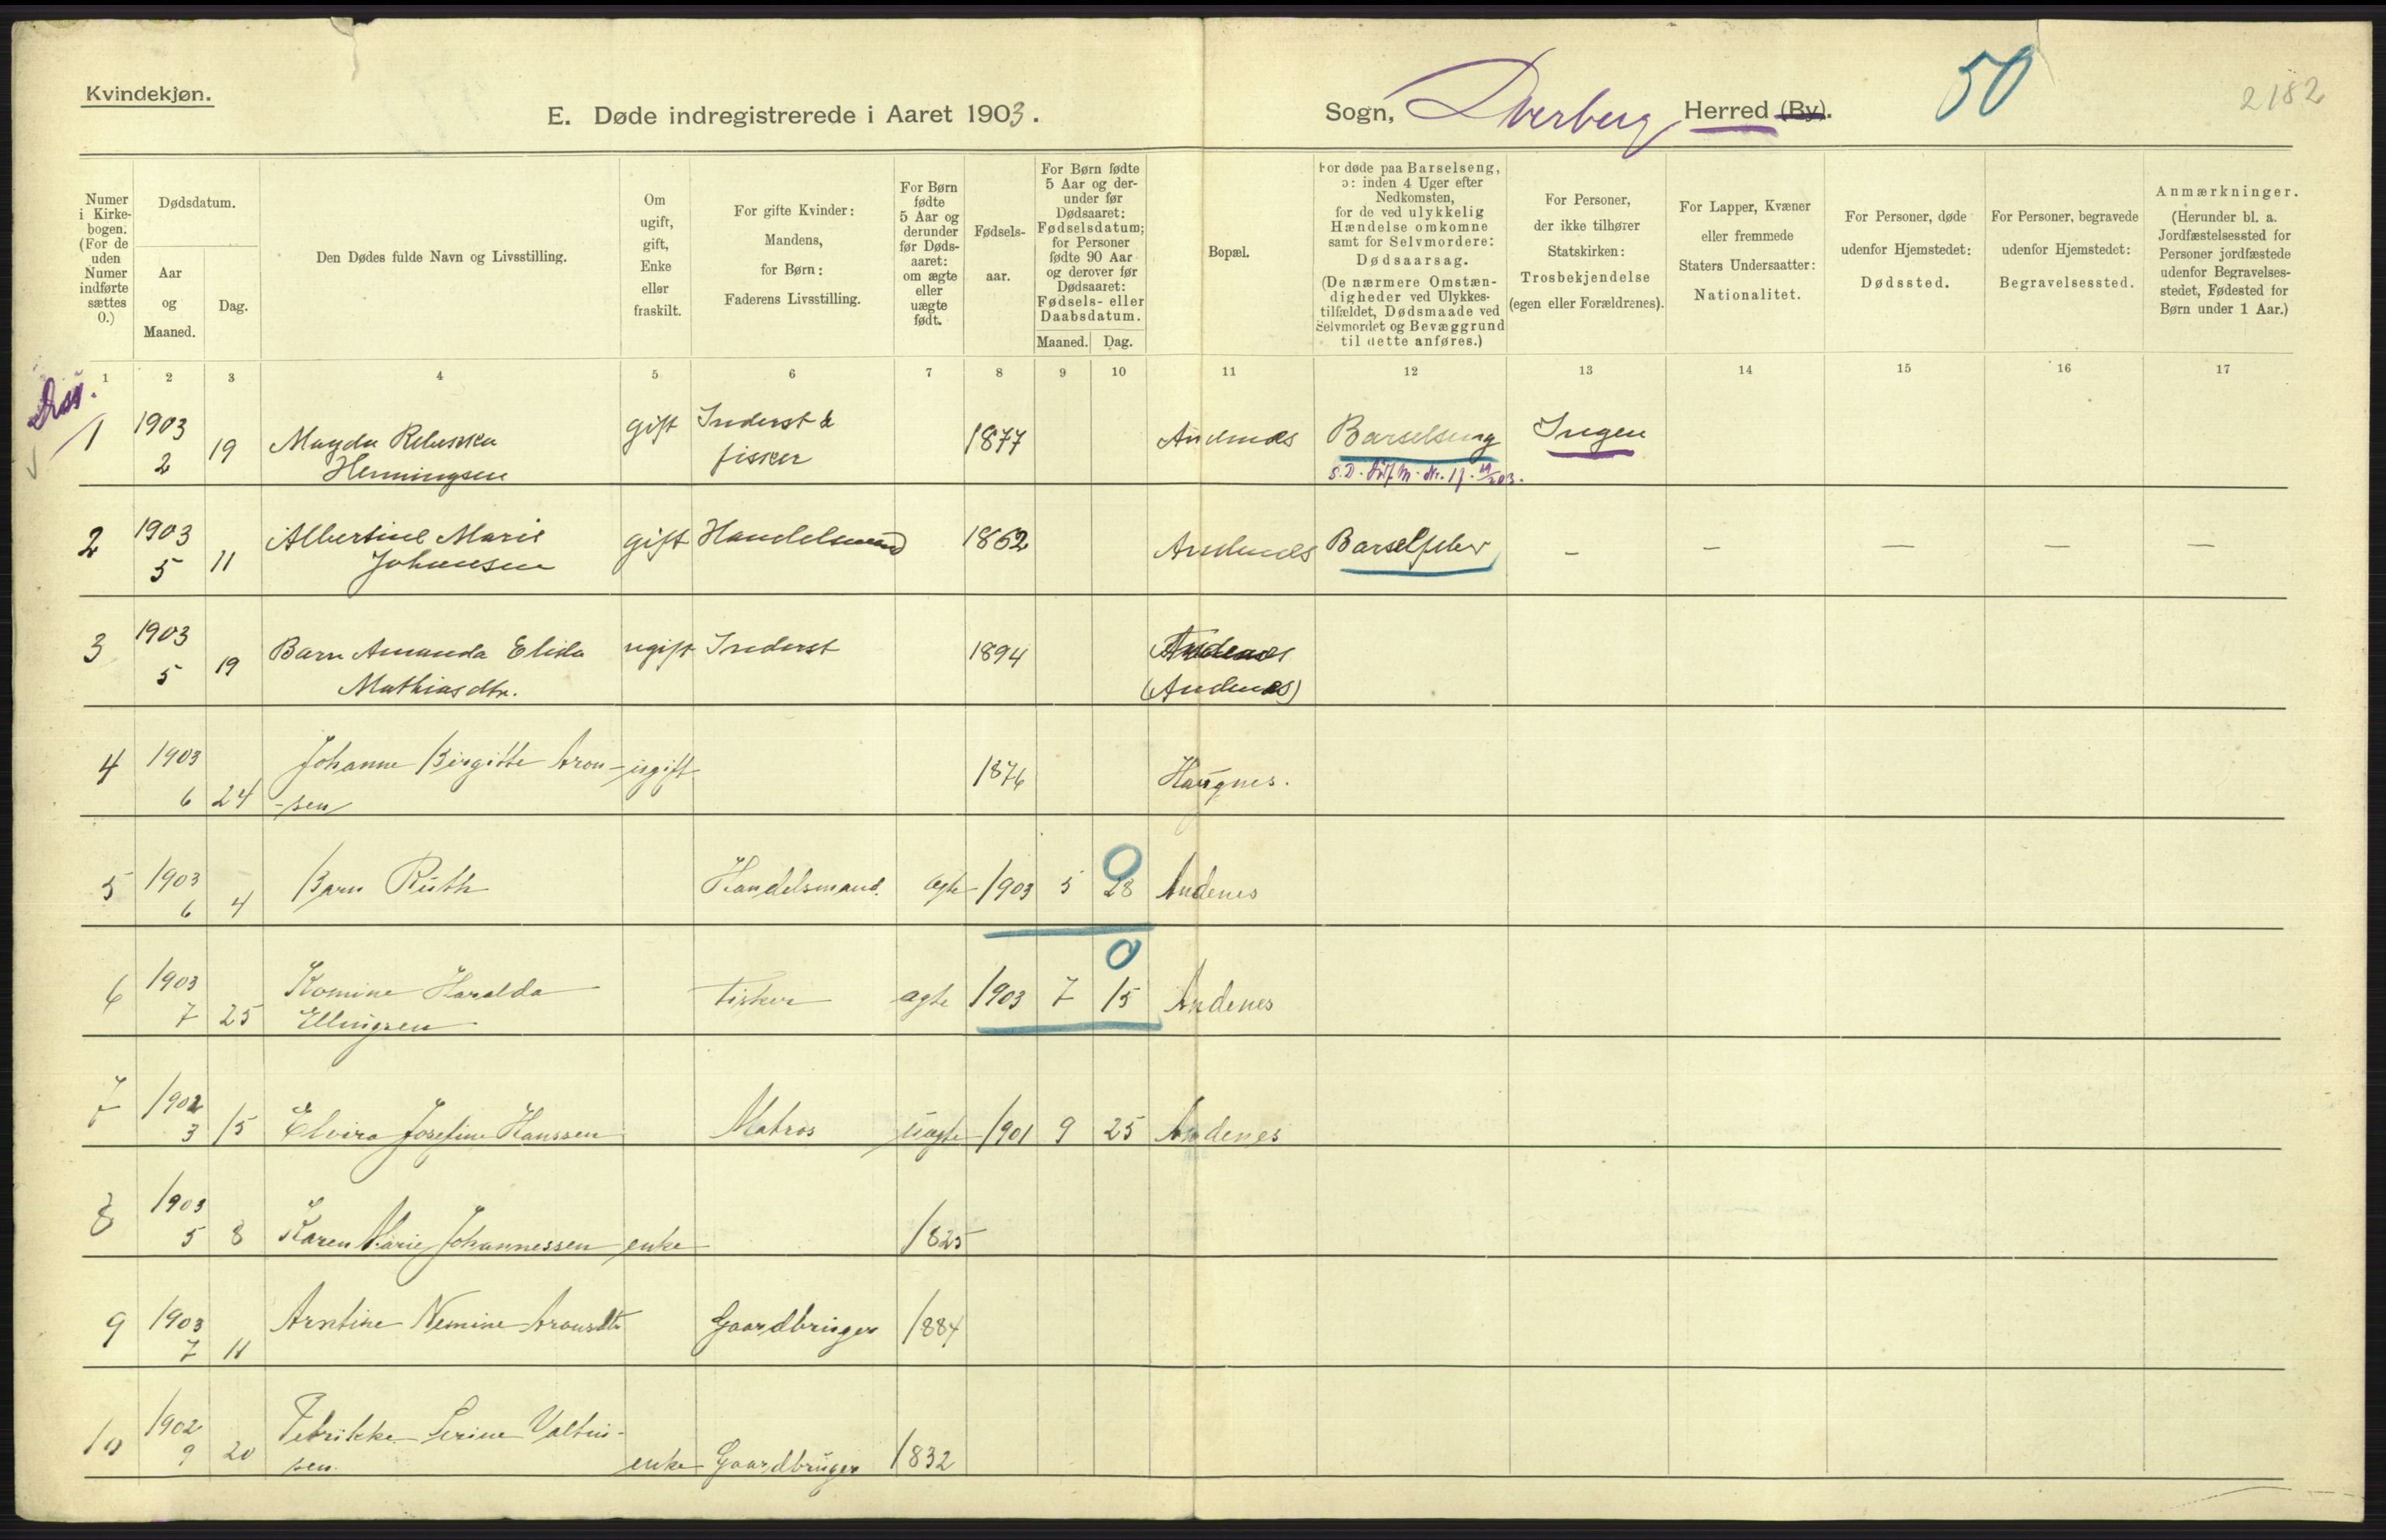 Kvindekjøn.
E. Døde indregistrerede i Aaret 1903.
Sogn, Dverberg Herred (By).
50
2182
Numer i Kirkebogen. (For de uden Numer indførte sættes 0.)
Dødsdatum.
Aar og Maaned.
Dag.
Den Dødes fulde Navn og Livsstilling.
Om ugift, gift, Enke eller fraskilt.
For gifte Kvinder: Mandens, for Børn: Faderens Livsstilling.
For Børn fødte 5 Aar og derunder før Dødsaaret: om ægte eller uægte født.
Fødselsaar.
For Børn fødte 5 Aar og derunder før Dødsaaret: Fødselsdatum; for Personer fødte 90 Aar og derover før Dødsaaret: Fødsels- eller Daabsdatum.
Maaned. Dag.
Bopæl.
For døde paa Barselseng, ɔ: inden 4 Uger efter Nedkomsten, for de ved ulykkelig Hændelse omkomne samt for Selvmordere: Dødsaarsag.
(De nærmere Omstændigheder ved Ulykkestilfældet, Dødsmaade ved Selvmordet og Bevæggrund til dette anføres.)
For Personer, der ikke tilhører Statskirken: Trosbekjendelse (egen eller Forældrenes).
For Lapper, Kvæner eller fremmede Staters Undersaatter: Nationalitet.
For Personer, døde udenfor Hjemstedet: Dødssted.
For Personer, begravede udenfor Hjemstedet: Begravelsessted.
Anmærkninger.
(Herunder bl. a. Jordfæstelsessted for Personer jordfæstede udenfor Begravelsesstedet, Fødested for Børn under 1 Aar.)
1 2 3 4 5 6 7 8 9 10 11 12 13 14 15 16 17
Diss.
1 1903 2 19 Magda Rebekka Henningsen gift Inderst & fisker 1877 Andenæs Barselseng Ingen
2 1903 5 11 Albertine Marie Johansen gift Handelsmand 1862 Andenæs Barselfeber – – – – –
3 1903 5 19 Barn Amanda Elida Mathiasdtr. ugift Inderst 1894 Andenæs (Andenæs)
4 1903 6 24 Johanne Birgitte Aron-sen ugift 1876 Haugnes.
5 1903 6 4 Barn Ruth Handelsmand. ægte 1903 5 28 0 Andenes
6 1903 7 25 Komine Haralda Ellingsen Fisker ægte 1903 7 15 0 Andenes
7 1902 3 15 Elvira Josefine Hanssen Matros uægte 1901 9 25 Andenes
8 1903 5 8 Karen Marie Johannessen enke 1825
9 1903 7 11 Arntine Nemine Aronsdtr Gaardbruger 1884
10 1902 9 20 Petrikke Serine Valtin-sen enke Gaardbruger 1832